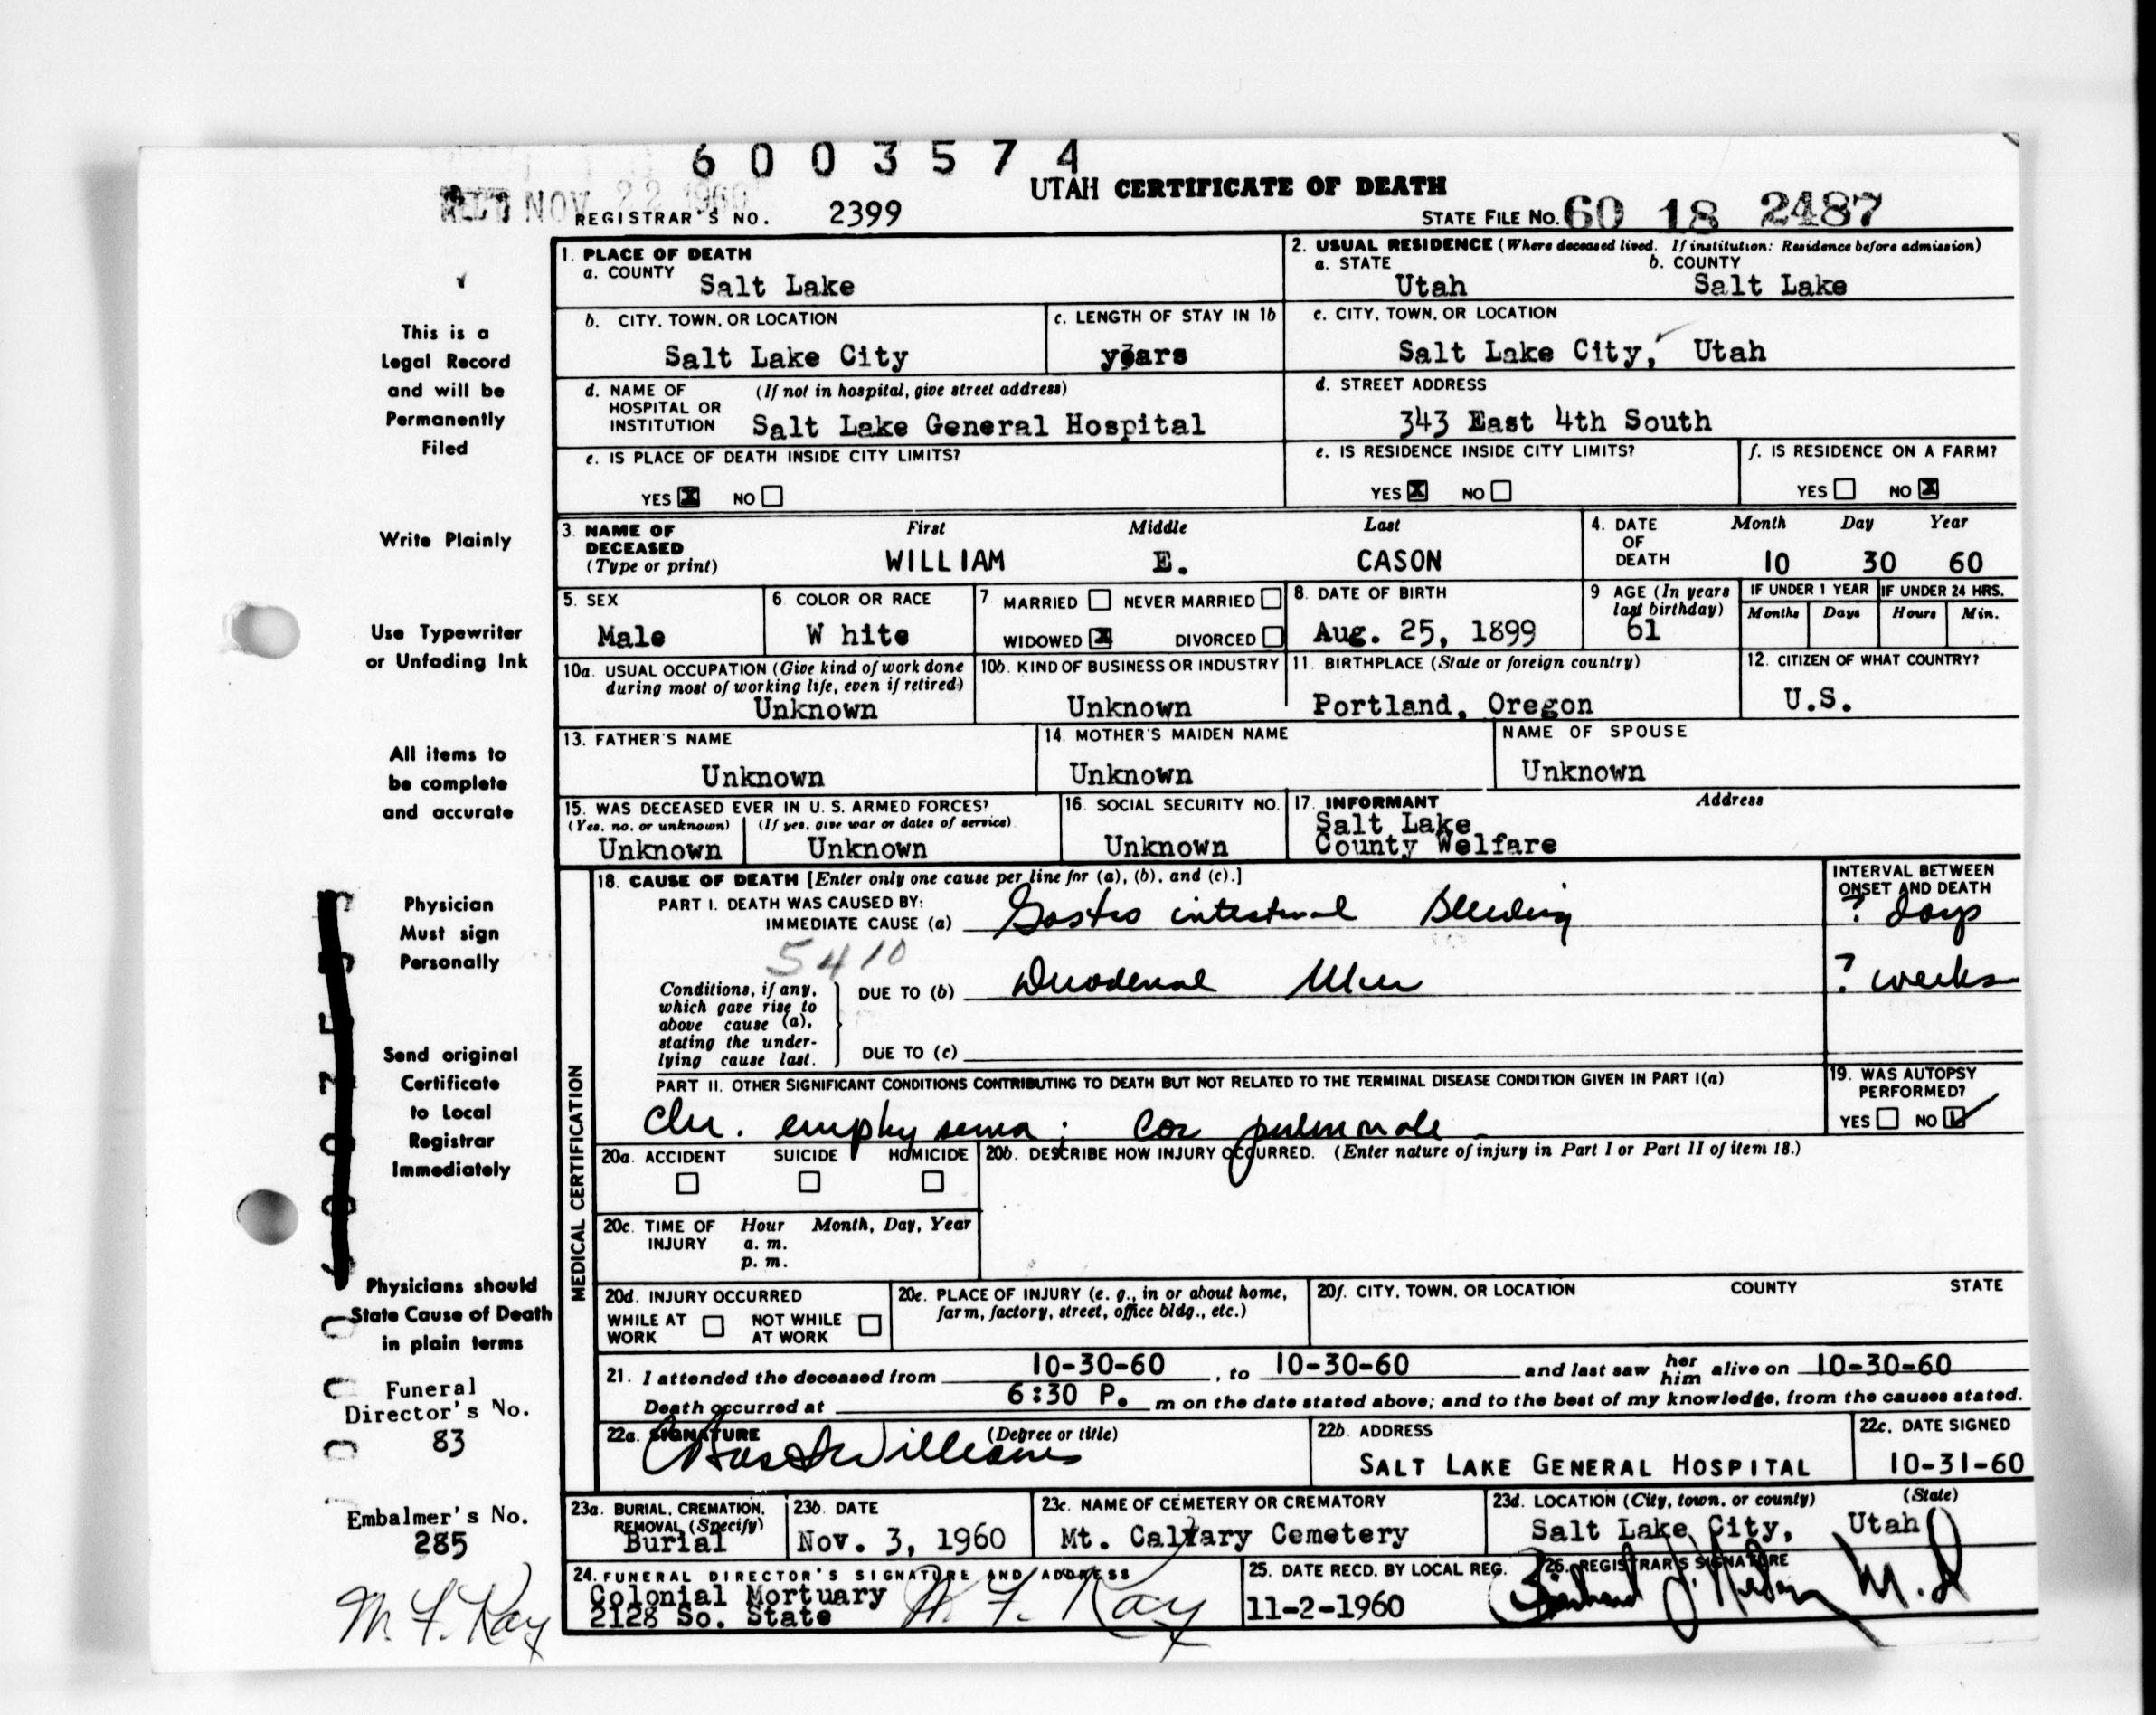 6 0 0 3 5 7 4
NOV 22 1960
UTAH CERTIFICATE OF DEATH
REGISTRAR'S NO. 2399
STATE FILE NO. 60 18 2487
This is a
Legal Record
and will be
Permanently
Filed
Write Plainly
Use Typewriter
or Unfading Ink
All items to
be complete
and accurate
Physician
Must sign
Personally
Send original
Certificate
to Local
Registrar
Immediately
Physicians should
State Cause of Death
in plain terms
Funeral
Director's No.
83
Embalmer's No.
285
M. F. Kay
1. PLACE OF DEATH
a. COUNTY Salt Lake
2. USUAL RESIDENCE (Where deceased lived. If institution: Residence before admission)
a. STATE Utah b. COUNTY Salt Lake
b. CITY, TOWN, OR LOCATION
Salt Lake City
c. LENGTH OF STAY IN 1b
years
c. CITY, TOWN, OR LOCATION
Salt Lake City, Utah
d. NAME OF HOSPITAL OR INSTITUTION (If not in hospital, give street address)
Salt Lake General Hospital
d. STREET ADDRESS
343 East 4th South
e. IS PLACE OF DEATH INSIDE CITY LIMITS?
YES X NO
e. IS RESIDENCE INSIDE CITY LIMITS?
YES X NO
f. IS RESIDENCE ON A FARM?
YES NO X
3. NAME OF DECEASED (Type or print)
First Middle Last
WILLIAM E. CASON
4. DATE OF DEATH
Month Day Year
10 30 60
5. SEX
Male
6. COLOR OR RACE
W hite
7. MARRIED NEVER MARRIED
WIDOWED X DIVORCED
8. DATE OF BIRTH
Aug. 25, 1899
9 AGE (In years last birthday)
61
IF UNDER 1 YEAR
Months Days
IF UNDER 24 HRS.
Hours Min.
10a. USUAL OCCUPATION (Give kind of work done
during most of working life, even if retired)
Unknown
10b. KIND OF BUSINESS OR INDUSTRY
Unknown
11. BIRTHPLACE (State or foreign country)
Portland, Oregon
12. CITIZEN OF WHAT COUNTRY?
U.S.
13. FATHER'S NAME
Unknown
14. MOTHER'S MAIDEN NAME
Unknown
NAME OF SPOUSE
Unknown
15. WAS DECEASED EVER IN U. S. ARMED FORCES?
(Yes, no, or unknown) (If yes, give war or dates of service)
Unknown Unknown
16. SOCIAL SECURITY NO.
Unknown
17. INFORMANT Address
Salt Lake
County Welfare
MEDICAL CERTIFICATION
18. CAUSE OF DEATH [Enter only one cause per line for (a), (b), and (c).]
INTERVAL BETWEEN
ONSET AND DEATH
PART I. DEATH WAS CAUSED BY:
IMMEDIATE CAUSE (a) Gastro intestinal Bleeding ? days
5410
Conditions, if any,
which gave rise to
above cause (a),
stating the under-
lying cause last.
DUE TO (b) Duodenal Ulcer ? weeks
DUE TO (c)
PART II. OTHER SIGNIFICANT CONDITIONS CONTRIBUTING TO DEATH BUT NOT RELATED TO THE TERMINAL DISEASE CONDITION GIVEN IN PART I(a)
Chr. emphysema; Cor pulmonale
19. WAS AUTOPSY
PERFORMED?
YES NO
20a. ACCIDENT SUICIDE HOMICIDE
20b. DESCRIBE HOW INJURY OCCURRED. (Enter nature of injury in Part I or Part II of item 18.)
20c. TIME OF INJURY
Hour Month, Day, Year
a. m.
p. m.
20d. INJURY OCCURRED
WHILE AT WORK NOT WHILE AT WORK
20e. PLACE OF INJURY (e. g., in or about home,
farm, factory, street, office bldg., etc.)
20f. CITY, TOWN, OR LOCATION COUNTY STATE
21. I attended the deceased from 10-30-60, to 10-30-60 and last saw her him alive on 10-30-60
Death occurred at 6:30 P. m on the date stated above; and to the best of my knowledge, from the causes stated.
22a. SIGNATURE (Degree or title)
Williams
22b. ADDRESS
SALT LAKE GENERAL HOSPITAL
22c. DATE SIGNED
10-31-60
23a. BURIAL, CREMATION,
REMOVAL (Specify)
Burial
23b. DATE
Nov. 3, 1960
23c. NAME OF CEMETERY OR CREMATORY
Mt. Calvary Cemetery
23d. LOCATION (City, town, or county) (State)
Salt Lake City, Utah
24. FUNERAL DIRECTOR'S SIGNATURE AND ADDRESS
Colonial Mortuary
2128 So. State
M. F. Kay
25. DATE RECD. BY LOCAL REG.
11-2-1960
26. REGISTRAR'S SIGNATURE
M.D